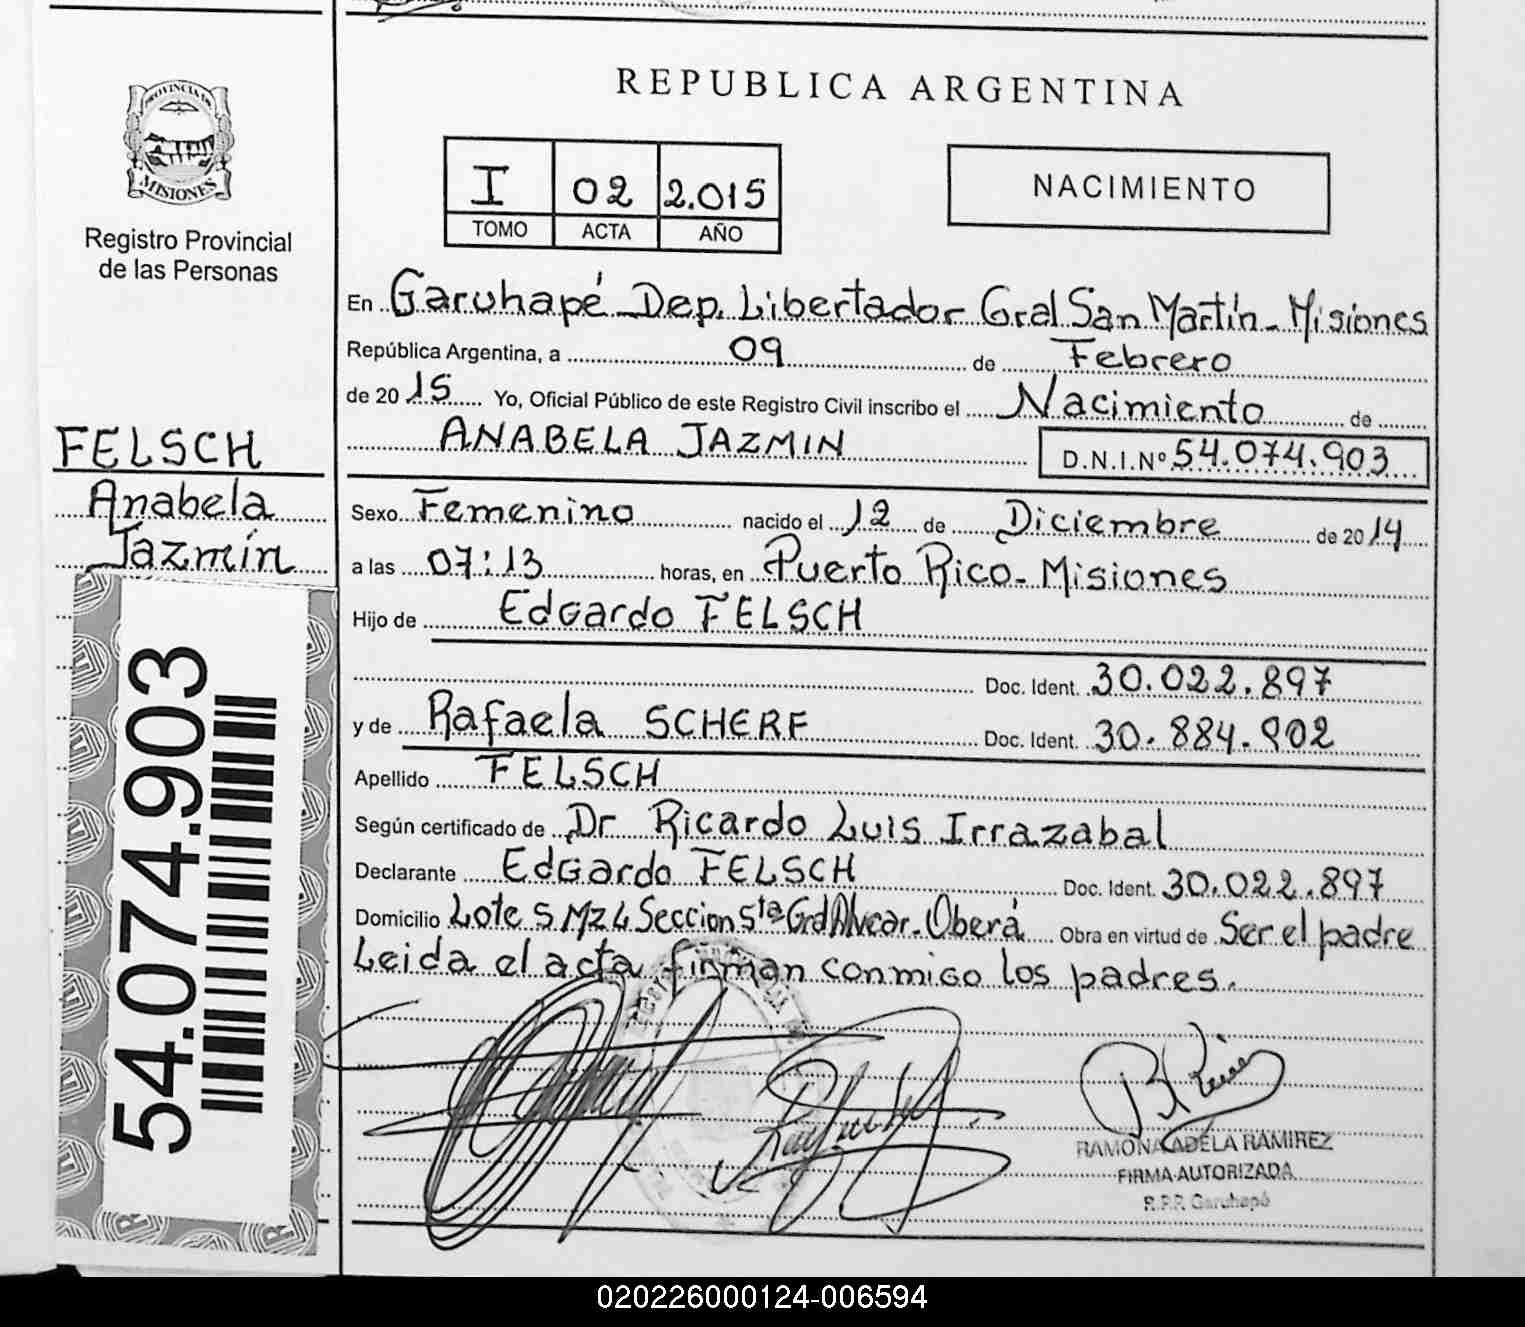 REPUBLICA ARGENTINA
PROVINCIA DE
MISIONES
Registro Provincial
de las Personas
I 02 2.015
TOMO ACTA AÑO
NACIMIENTO
En Garuhapé - Dep. Libertador Gral San Martín - Misiones
República Argentina, a 09 de Febrero
de 2015 Yo, Oficial Público de este Registro Civil inscribo el Nacimiento de
ANABELA JAZMIN D.N.I.Nº 54.074.903
FELSCH
Anabela
Jazmín
Sexo Femenino nacido el 12 de Diciembre de 2014
a las 07:13 horas, en Puerto Rico - Misiones
Hijo de Edgardo FELSCH
Doc. Ident. 30.022.897
y de Rafaela SCHERF Doc. Ident. 30.884.902
Apellido FELSCH
Según certificado de Dr Ricardo Luis Irrazabal
Declarante Edgardo FELSCH Doc. Ident. 30.022.897
Domicilio Lote 5 Mz 4 Seccion 5ta Gral Alvear - Oberá Obra en virtud de Ser el padre
Leida el acta, firman conmigo los padres.
54.074.903
RAMONA ADELA RAMIREZ
FIRMA AUTORIZADA
R.P.P. Garuhapé
020226000124-006594